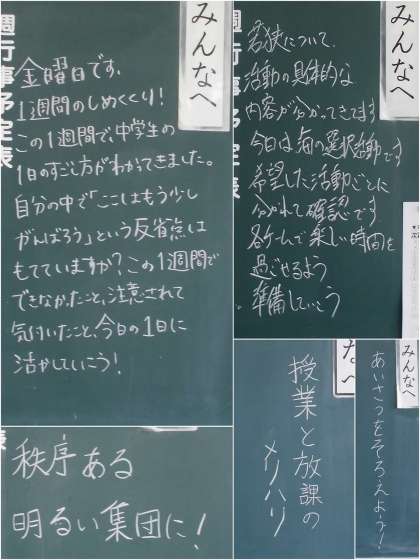 みんなへ
週行事予定表
金曜日です。
1週間のしめくくり！
この1週間で、中学生の
1日のすごし方がわかってきました。
自分の中で「ここはもう少し
がんばろう」という反省点は
もてていますか？この1週間で
できなかったこと、注意されて
気付いたこと、今日の1日に
活かしていこう！
みんなへ
週行事予定表
若狭について、
活動の具体的な
内容が分かってきてます
今日は海の選択活動です
希望した活動ごとに
分かれて確認です
各チームで楽しい時間を
過ごせるよう
準備していこう
秩序ある
明るい集団に！
なへ
授業と放課の
メリハリ
みんなへ
あいさつをそろえよう！